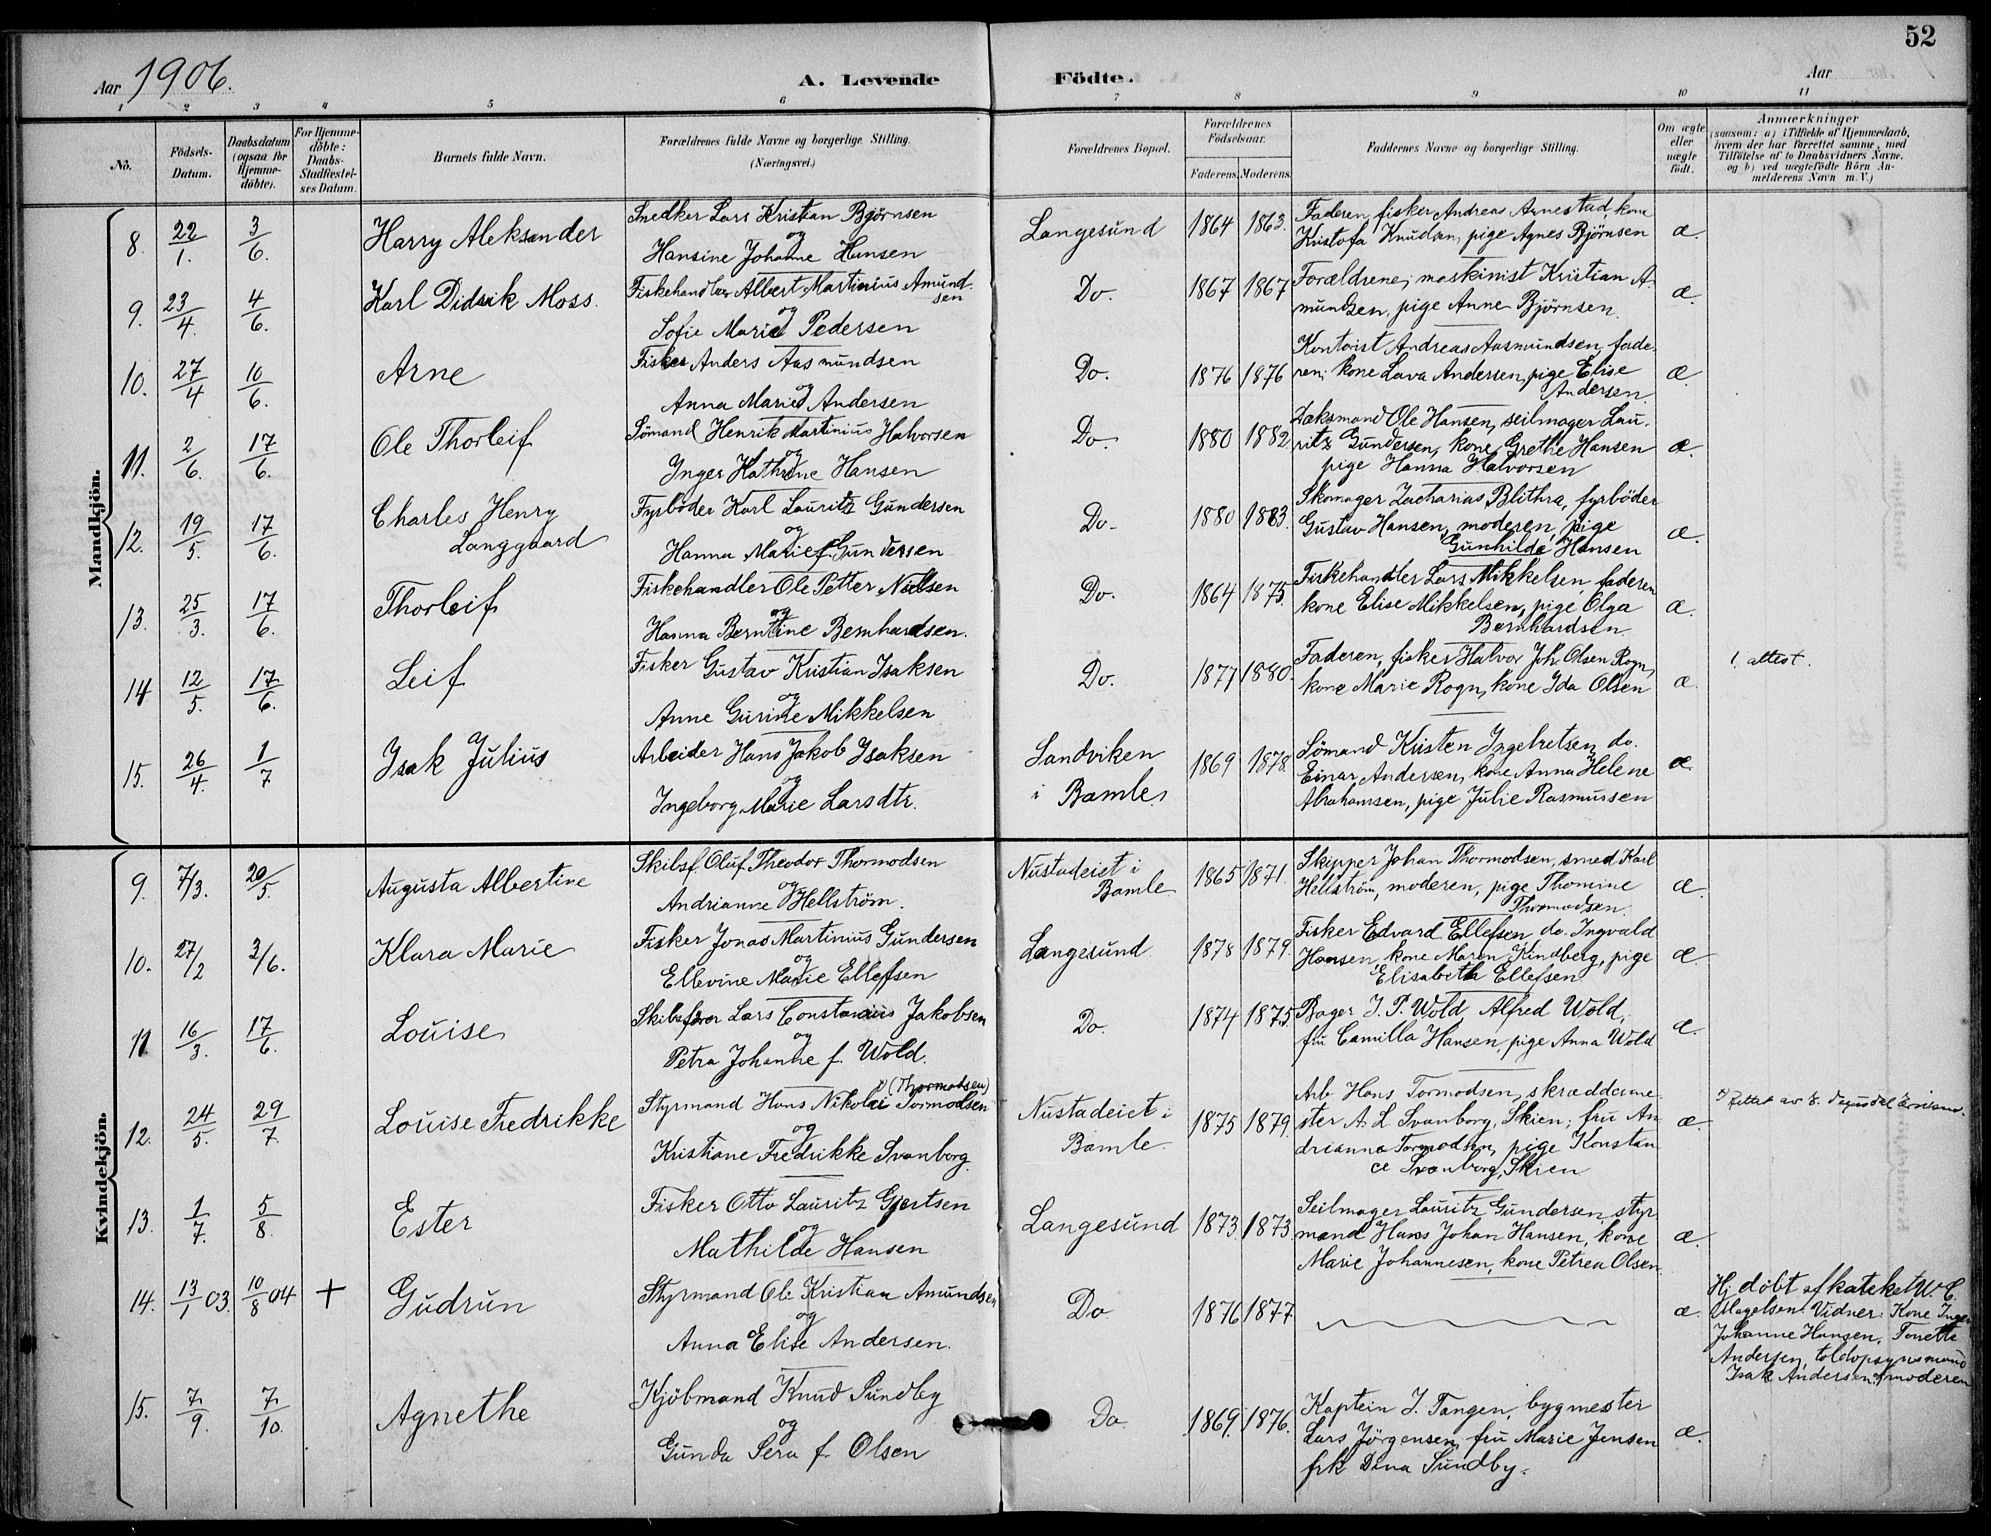 52
Aar 1906.
A. Levende Födte.
Aar
1 2 3 4 5 6 7 8 9 10 11
No.
Födsels-Datum.
Daabsdatum (ogsaa for Hjemme-döbte).
For Hjemme-döbte: Daabs-Stadfæstel-ses Datum.
Barnets fulde Navn.
Forældrenes fulde Navne og borgerlige Stilling.
(Næringsvei.)
Forældrenes Bopæl.
Forældrenes Födselsaar.
Faderens. Moderens.
Faddernes Navne og borgerlige Stilling.
Om ægte eller uægte födt.
Anmærkninger
(saasom: a) i Tilfælde af Hjemmedaab, hvem der har forrettet samme, med Tilföielse af to Daabsvidners Navne, og b) ved uægtefödte Börn An-melderens Navn m. V.)
Mandkjön.
8. 22/1. 3/6. Harry Aleksander
Snedker Lars Kristian Björnsen
og
Hansine Johanne Hansen
Langesund 1864 1863.
Faderen, fisker Andreas Arnestad, kone
Kristofa Knudsen, pige Agnes Björnsen
æ.
9. 23/4. 4/6. Karl Didrik Moss.
Fiskehandler Albert Martinius Amund-
sen
og
Sofie Marie Pedersen
Do. 1867 1867
Forældrene, maskinist Kristian A-
mundsen, pige Anne Björnsen.
æ.
10. 27/4 10/6. Arne
Fisker Anders Aasmundsen
og
Anna Marie Andersen
Do. 1876 1876
Kontorist Andreas Aasmundsen, fade-
ren; kone Lava Andersen, pige Elise
Andersen.
æ
11. 2/6. 17/6. Ole Thorleif
Sömand Henrik Martinius Halvorsen
og
Inger Kathrine Hansen
Do. 1880 1882
Ole Hansen, seilmager Lau-
ritz Gundersen, kone Grethe Hansen
pige Hanna Halvorsen
æ.
12. 19/5. 17/6. Charles Henry
Langgaard
Fyrböder Karl Lauritz Gundersen
og
Hanna Marie f. Gundersen
Do. 1880 1883.
Skomager Zacharias Blithra, fyrböder
Gustav Hansen, moderen, pige
Gunhilda Hansen
æ.
13. 25/3. 17/6. Thorleif
Fiskehandler Ole Petter Nielsen
og
Hanna Berntine Bernhardsen.
Do. 1864 1875.
Fiskehandler Lars Mikkelsen, faderen
kone Elise Mikkelsen, pige Olga
Bernhardsen
æ.
14 12/5. 17/6. Leif
Fisker Gustav Kristian Isaksen
og
Anne Gurine Mikkelsen
Do. 1877 1880.
Faderen, fisker Halvor Joh. Olsen Rogn,
kone Marie Rogn, kone Ida Olsen
æ.
1. attest.
15. 26/4. 1/7 Isak Julius
Arbeider Hans Jakob Isaksen
og
Ingeborg Marie Larsdtr.
Sandviken
i Bamle
1869 1878.
Sömand Kristen Ingebretsen, do.
Einar Andersen, kone Anna Helene
Abrahamsen, pige Julie Rasmussen
æ.
Kvindekjön.
9. 7/3. 20/5. Augusta Albertine
Skibsf. Oluf Theodor Thormodsen
og
Andrianne Hellström.
Nustadeiet i
Bamle
1865 1871.
Skipper Johan Thormodsen, smed Karl
Hellström, moderen, pige Thomine
Thormodsen.
æ.
10. 27/2 3/6. Klara Marie
Fisker Jonas Martinius Gundersen
og
Ellevine Marie Ellefsen
Langesund 1878 1879.
Fisker Edvard Ellefsen, do. Ingvald
Hansen, kone Maren Kindberg, pige
Elisabeth Ellefsen
æ.
11 16/3. 17/6. Louise
Skibsförer Lars Constancius Jakobsen
og
Petra Johanne f. Wold.
Do. 1874 1875
Bager J. P. Wold, Alfred Wold,
fru Camilla Hansen, pige Anna Wold
æ.
12. 24/5. 29/7. Louise Fredrikke
(Thormodsen)
Styrmand Hans Nikolai Tormodsen
og
Kristiane Fredrikke Svanborg.
Nustadeiet i
Bamle.
1875 1879.
Arb. Hans Tormodsen, skræddeme-
ster A. L. Svanborg, Skien; fru An-
drianna Tormodsen, pige Konstan
ce Svanborg, Skien
æ.
Rettet av
13. 1/7. 5/8. Ester
Fisker Otto Lauritz Gjertsen
og
Mathilde Hansen
Langesund 1873. 1873.
Seilmager Lauritz Gundersen, styr
mand Hans Johan Hansen, kone
Marie Johannesen, kone Petrea Olsen.
æ.
14. 13/1 03. 10/8 04 + Gudrun
Styrmand Ole Kristian Amundsen
og
Anna Elise Andersen.
Do 1876 1877
æ.
Hj. döbt af kateket W. C.
Magelsen. Vidner: Kone Inger
Johanne Hansen, Tonette
Andersen, toldopsynsmand
Isak Andersen, moderen
15. 7/9. 7/10. Agnethe
Kjöbmand Knud Sundby
og
Gunda Sera f. Olsen
Do 1869. 1876.
Kaptein J. Tangen, bygmester
Lars Jörgensen, fru Marie Jensen
frk Dina Sundby.
æ.